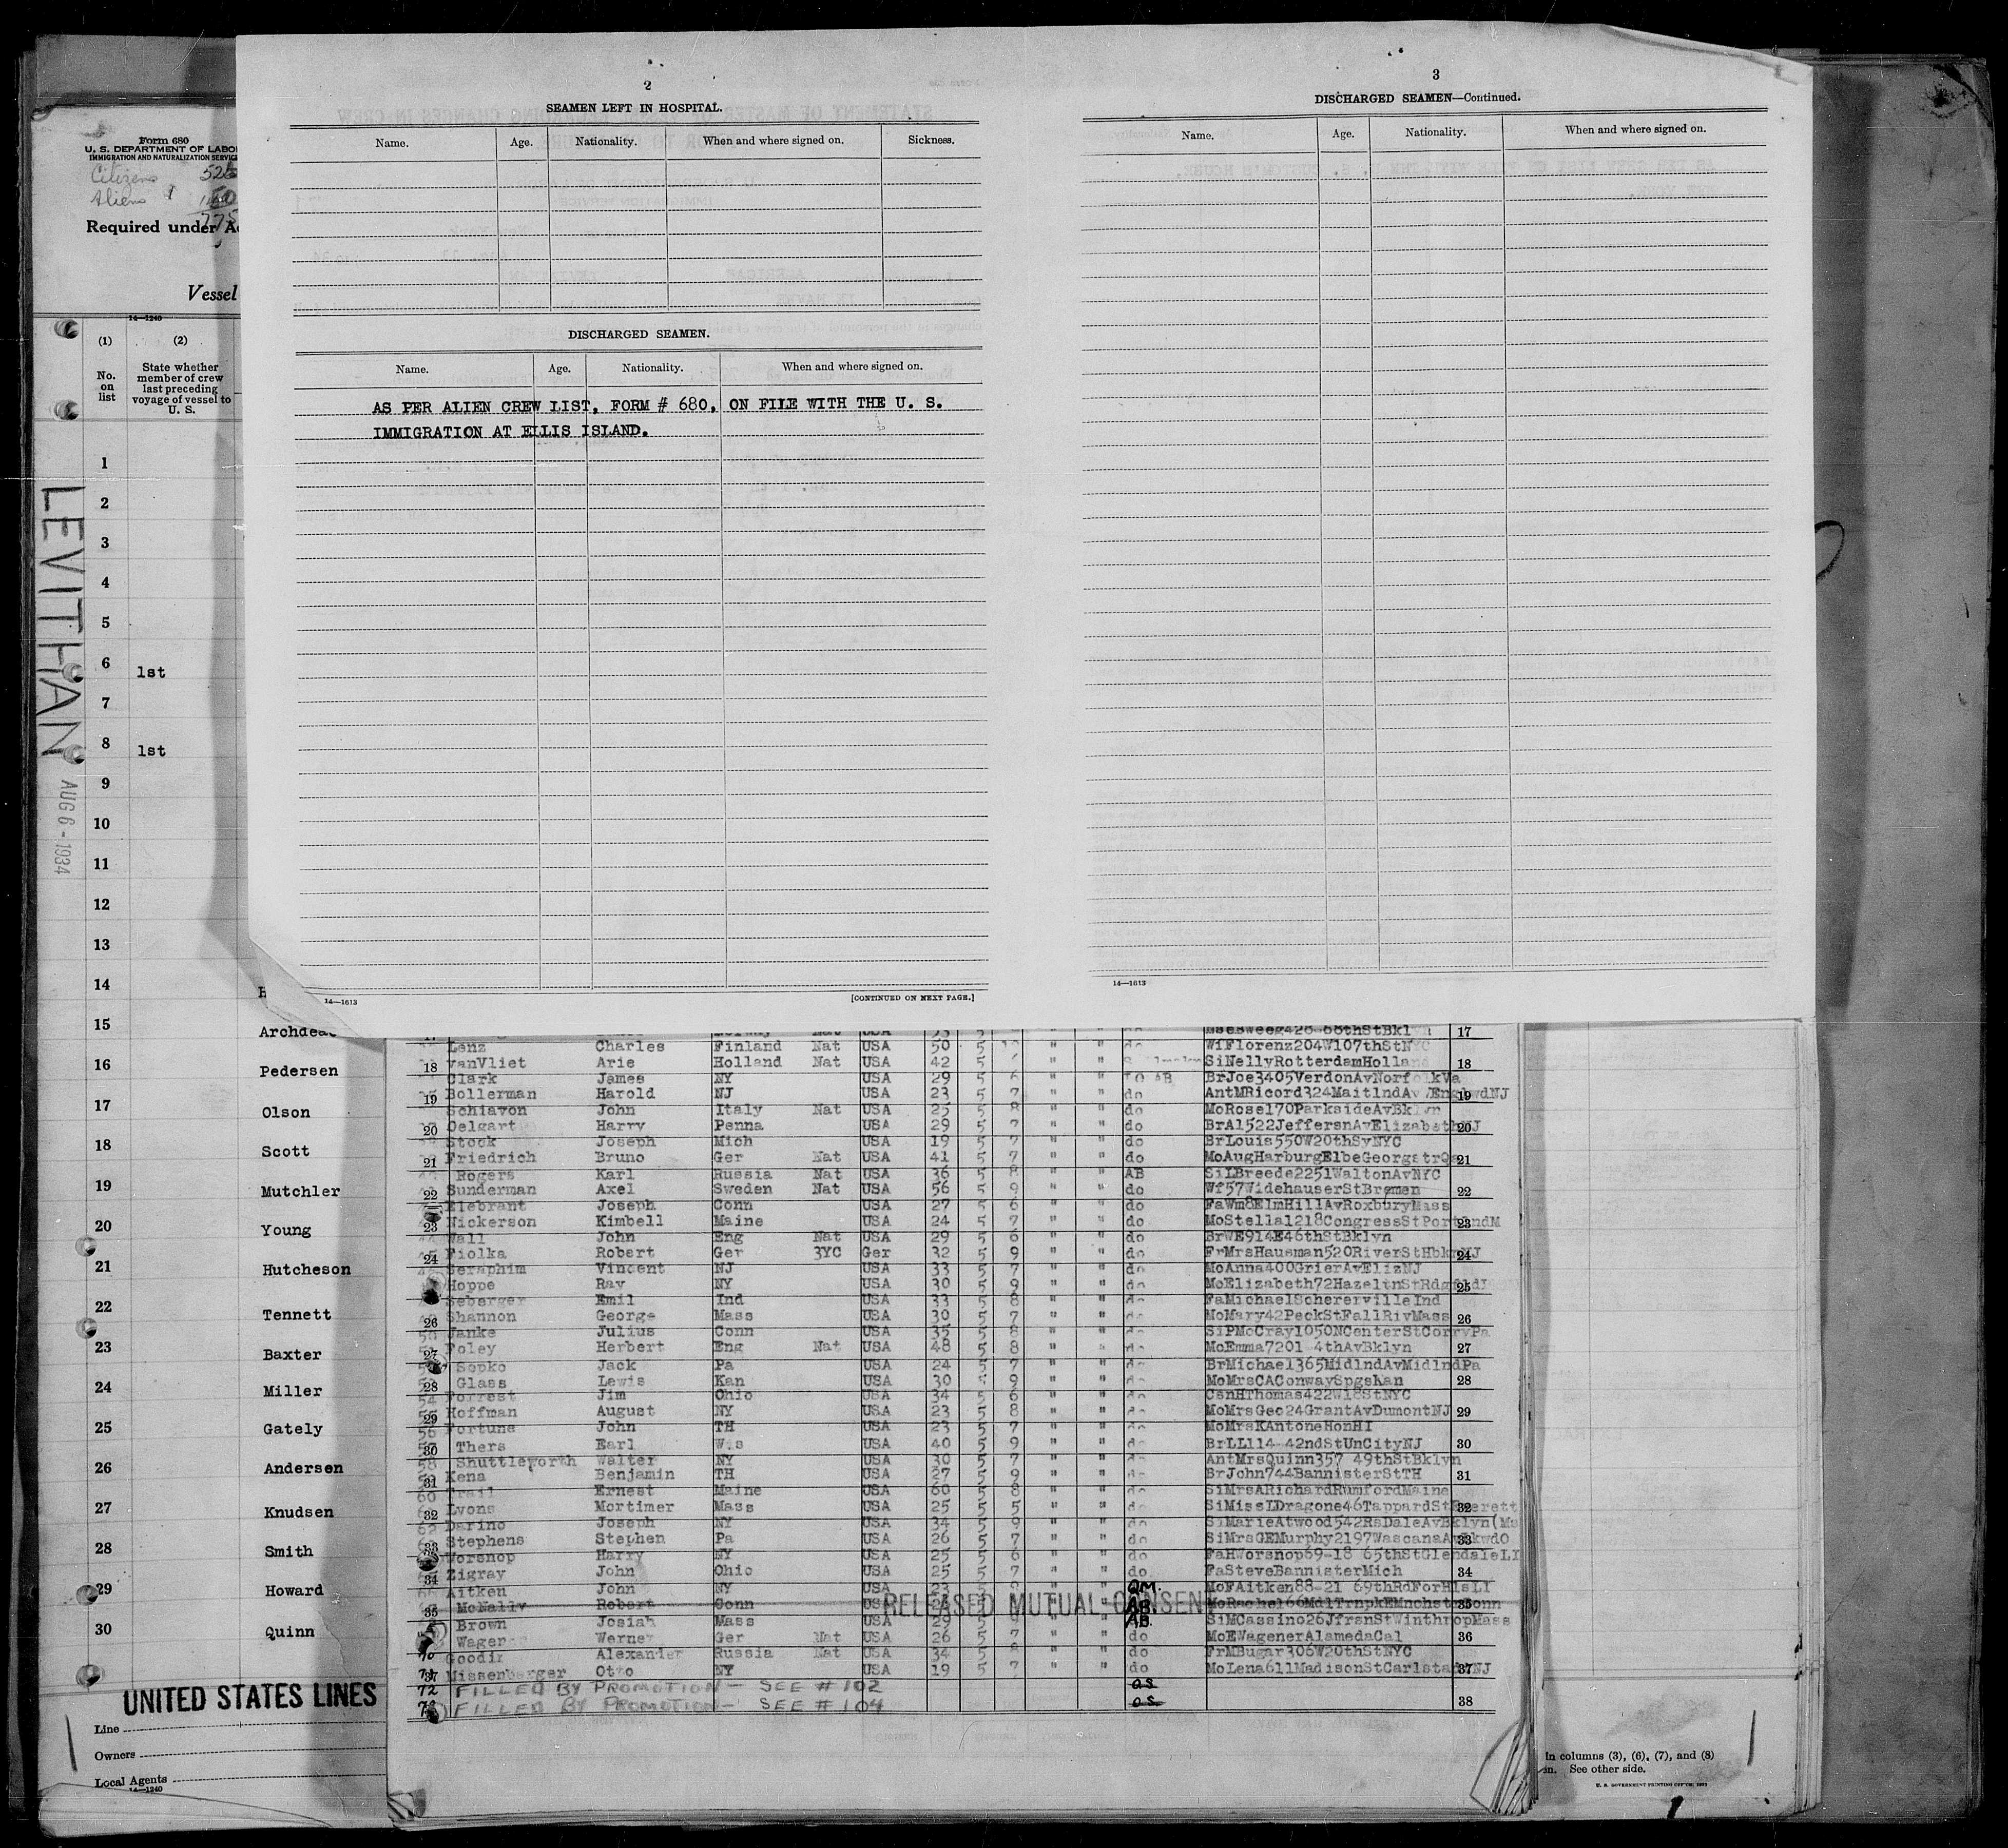 2
SEAMEN LEFT IN HOSPITAL.
Name. Age. Nationality. When and where signed on. Sickness.
DISCHARGED SEAMEN.
Name. Age. Nationality. When and where signed on.
AS PER ALIEN CREW LIST, FORM # 680, ON FILE WITH THE U. S.
IMMIGRATION AT ELLIS ISLAND.
14—1613
[CONTINUED ON NEXT PAGE.]
3
DISCHARGED SEAMEN—Continued.
Name. Age. Nationality. When and where signed on.
14—1613
Form 680
U. S. DEPARTMENT OF LABO
IMMIGRATION AND NATURALIZATION SERVIC
Citizens
Aliens
Required under A
Vessel
14—1240
(1) (2)
No. on list
State whether member of crew last preceding voyage of vessel to U. S.
LEVITHAN
AUG 6 - 1934
1
2
3
4
5
6 1st
7
8 1st
9
10
11
12
13
14
15 Archdea
16 Pedersen
17 Olson
18 Scott
19 Mutchler
20 Young
21 Hutcheson
22 Tennett
23 Baxter
24 Miller
25 Gately
26 Andersen
27 Knudsen
28 Smith
29 Howard
30 Quinn
UNITED STATES LINES
Line
Owners
Local Agents
14—1240
17
Lenz Charles Finland Nat USA 50 5 " " do WiFlorenz204W107thStNYC
18 vanVliet Arie Holland Nat USA 42 5 " " SiNellyRotterdamHolland 18
Clark James NY USA 29 5 6 " " BrJoe3405VerdonAvNorfolkVa
19 Bollerman Harold NJ USA 23 5 7 " " do AntMRicord324MaitlndAv 19
Schiavon John Italy Nat USA 25 5 8 " " do MoRose170ParksideAvBklyn
20 Oelgart Harry Penna USA 29 5 7 " " do BrAl522JeffersnAvElizabeth 20
Stock Joseph Mich USA 19 5 7 " " do BrLouis550W20thSyNYC
21 Friedrich Bruno Ger Nat USA 41 5 7 " " do MoAugHarburgElbeGeorgstr 21
Rogers Karl Russia Nat USA 36 5 8 " " AB SiLBreede2251WaltonAvNYC
22 Sunderman Axel Sweden Nat USA 56 5 9 " " do Wf57WidehauserStBremen 22
Elebrant Joseph Conn USA 27 5 6 " " do FaWm8ElmHillAvRoxburyMass
23 Nickerson Kimbell Maine USA 24 5 7 " " do MoStella1218CongressStPortlndM 23
Wall John Eng Nat USA 29 5 6 " " do BrWE914E46thStBklyn
24 Fiolka Robert Ger 3YC Ger 32 5 9 " " do FrMrsHausman520RiverStHbknNJ 24
Seraphim Vincent NJ USA 33 5 7 " " do MoAnna400GrierAvElizNJ
Hoppe Ray NY USA 30 5 9 " " do MoElizabeth72HazeltnStRdgfld 25
Seberger Emil Ind USA 33 5 8 " " do FaMichaelScherervilleInd
26 Shannon George Mass USA 30 5 7 " " do MoMary42PeckStFallRivMass 26
50 Janke Julius Conn USA 35 5 8 " " do SiPMcCray1050NCenterStCorryPa
27 Foley Herbert Eng Nat USA 48 5 8 " " do MoEmma7201 4thAvBklyn 27
Sopko Jack Pa USA 24 5 7 " " do BrMichael365MidlndAvMidlndPa
28 Glass Lewis Kan USA 30 5 9 " " do MoMrsCAConwaySpgsKan 28
54 Forrest Jim Ohio USA 34 5 6 " " do CsnHThomas422W18StNYC
29 Hoffman August NY USA 23 5 8 " " do MoMrsGeo24GrantAvDumontNJ 29
56 Fortune John TH USA 23 5 7 " " do MoMrsKAntoneHonHI
30 Thers Earl Wis USA 40 5 9 " " do BrLL114 42ndStUnCityNJ 30
58 Shuttleworth Walter NY USA 30 5 7 " " do AntMrsQuinn357 49thStBklyn
31 Kena Benjamin TH USA 27 5 9 " " do BrJohn744BannisterStTH 31
60 Trail Ernest Maine USA 60 5 8 " " do SiMrsARichardRumfordMaine
32 Lyons Mortimer Mass USA 25 5 5 " " do SiMissLDragone46TappardStEverett 32
62 Darino Joseph NY USA 34 5 9 " " do SiMarieAtwood542RsDaleAvBklyn
33 Stephens Stephen Pa USA 26 5 7 " " do SiMrsGEMurphy2197WascanaAvLkwdO 33
Worsnop Harry NY USA 25 5 6 " " do FaHWorsnop69-18 65thStGlendaleLI
34 Zigray John Ohio USA 25 5 7 " " do FaSteveBannisterMich 34
Aitken John NY USA 23 5 " " QM. MoFAitken88-21 69thRdForHlsLI
35 McNally Robert Conn USA AB. MoRachel66MdlTrnpkEMnchstrConn 35
RELEASED MUTUAL CONSENT
Brown Josiah Mass USA 29 5 9 " " AB. SiMCassino26JfrsnStWinthropMass
Wagener Werner Ger Nat USA 26 5 7 " " do MoEWagenerAlamedaCal 36
70 Goodin Alexander Russia Nat USA 34 5 8 " " do FrMBugar306W20thStNYC
71 Missenberger Otto NY USA 19 5 7 " " do MoLena611MadisonStCarlstadtNJ 37
72 FILLED BY PROMOTION — SEE # 102 OS
73 FILLED BY PROMOTION — SEE # 104 OS 38
in columns (3), (6), (7), and (8)
See other side.
U. S. GOVERNMENT PRINTING OFFICE